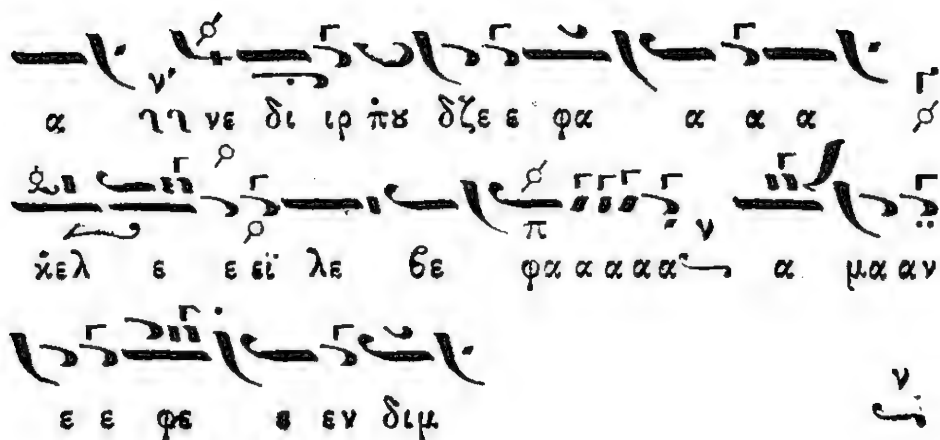 α νε δι ιρ π̇ȣ δζε ε φα α α α
κ̇ελ ε ε εϊ λε ϐε φα α α α α α μα αν
ε ε φε ε εν διμ